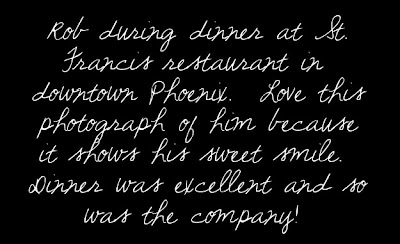 Rob during dinner at St.
Francis restaurant in
downtown Phoenix. Love this
photograph of him because
it shows his sweet smile.
Dinner was excellent and so
was the company!